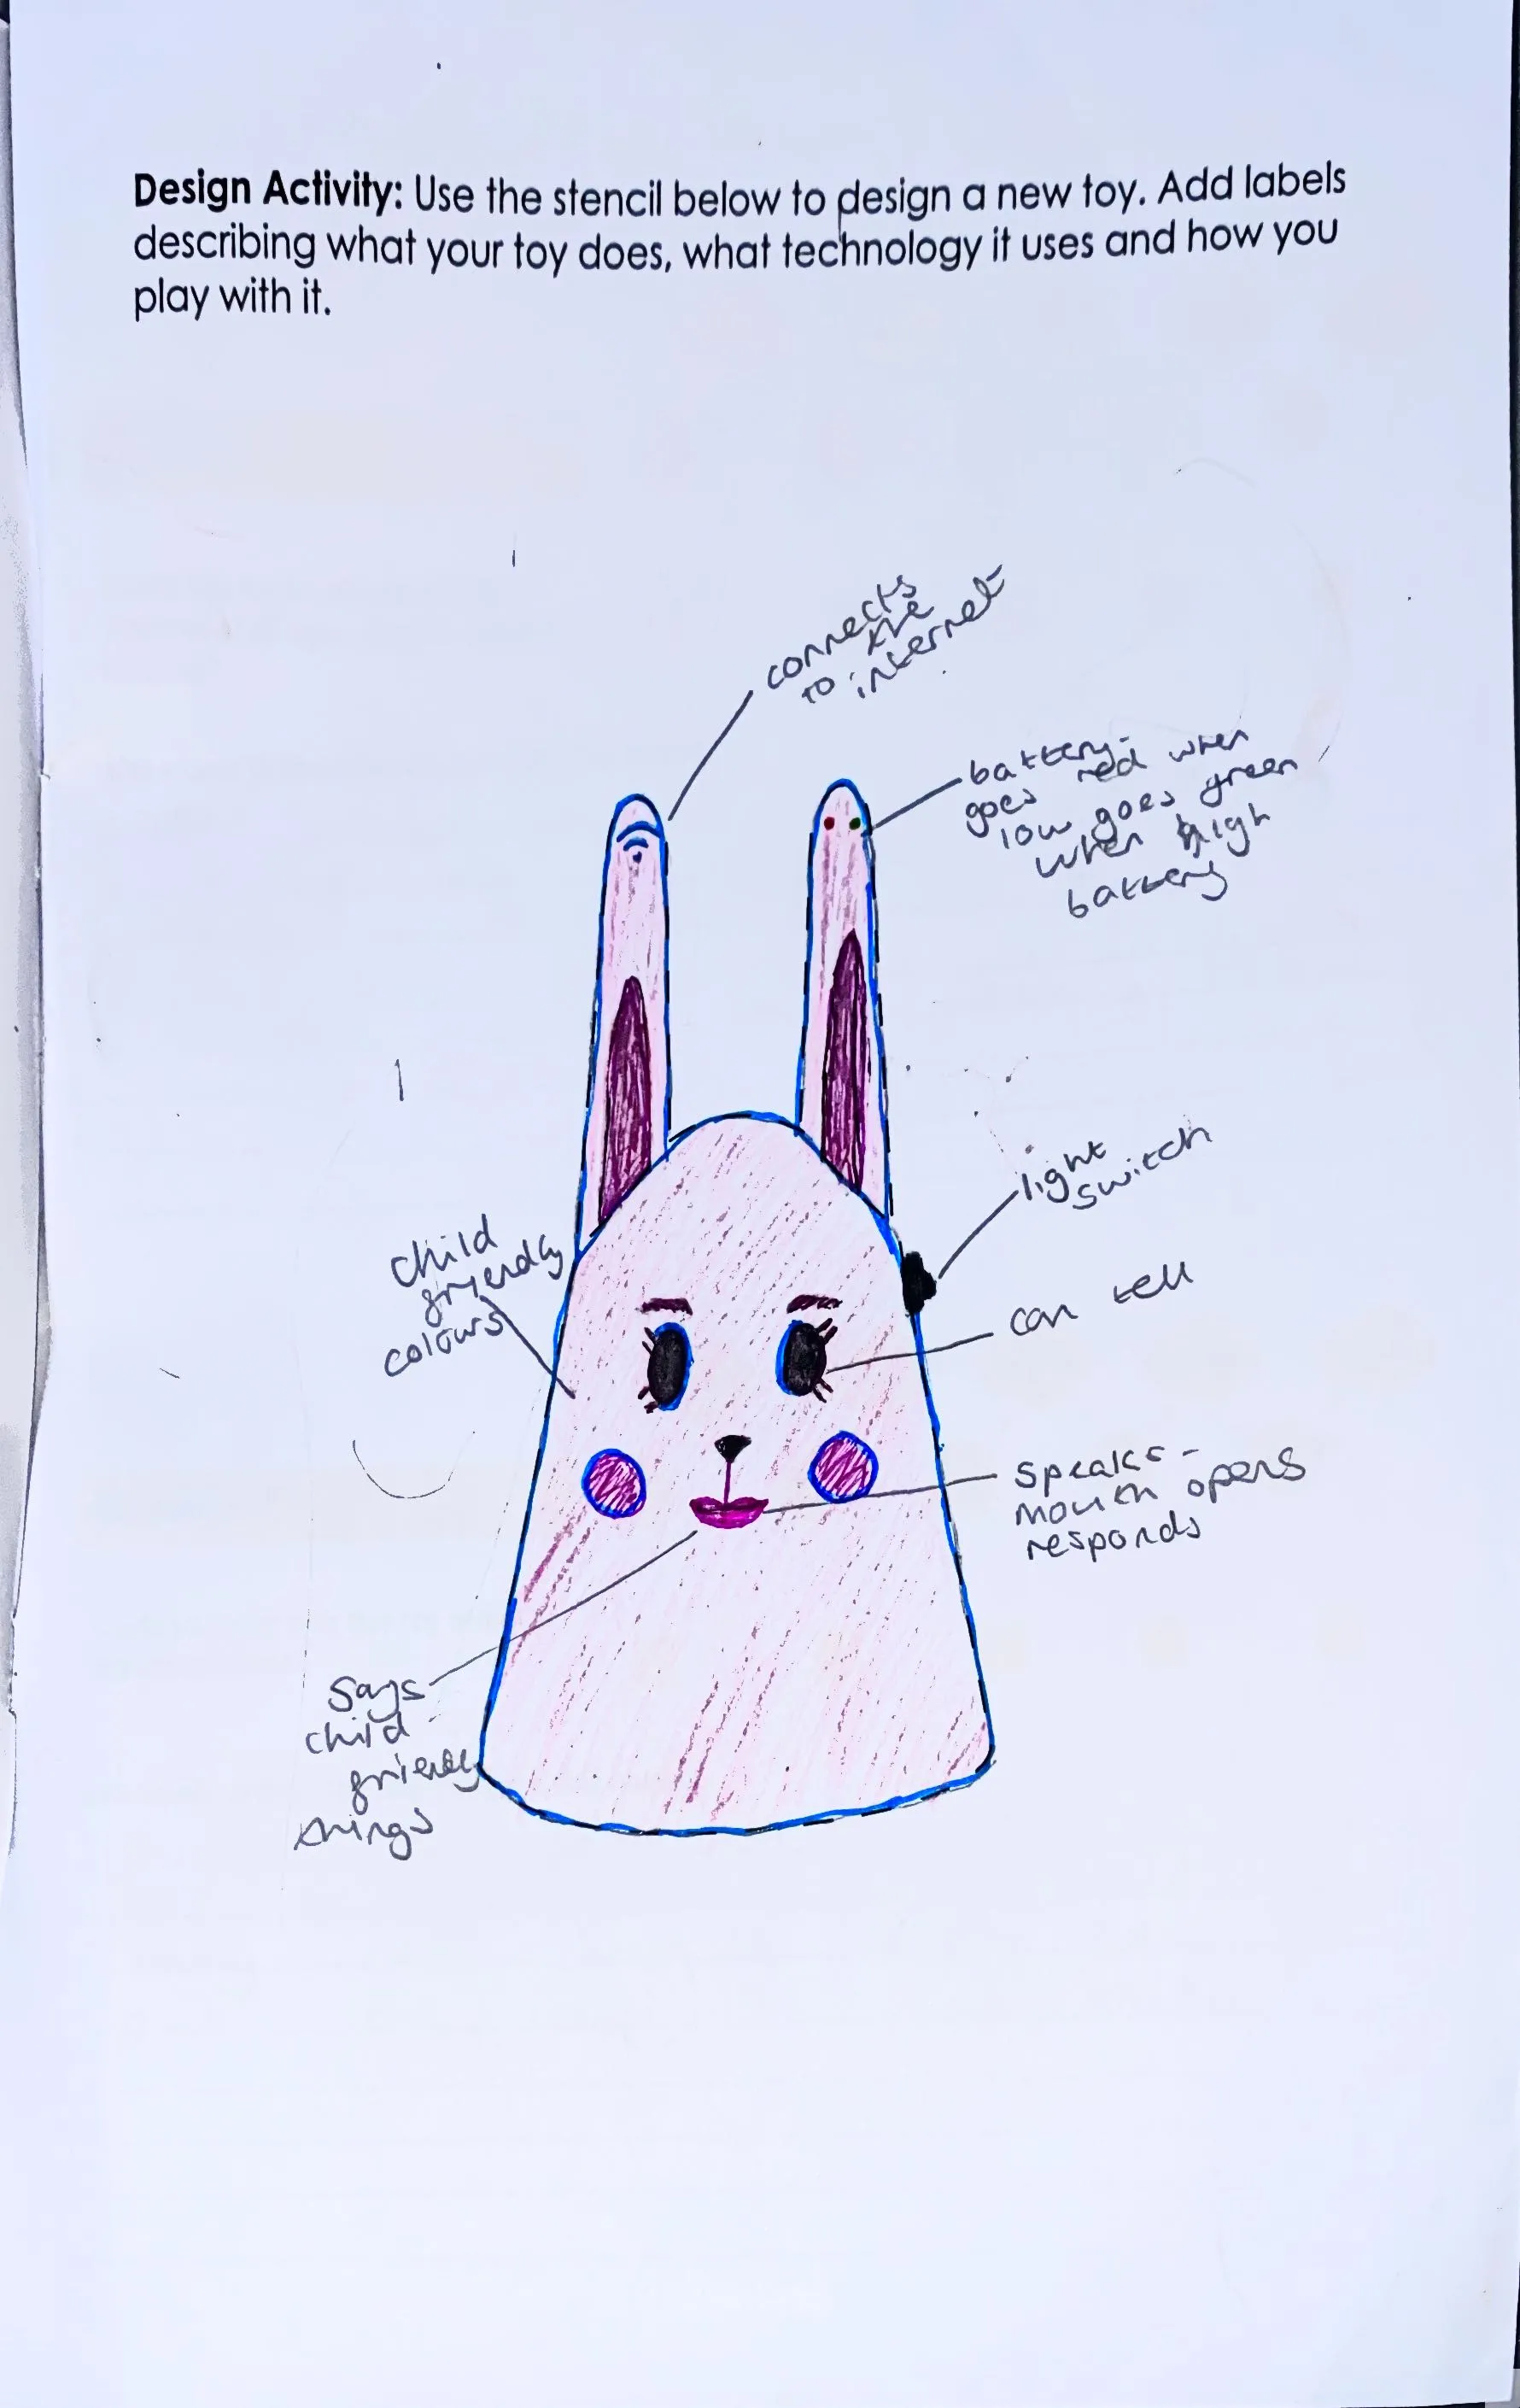 Design Activity: Use the stencil below to design a new toy. Add labels
describing what your toy does, what technology it uses and how you
play with it.
connects
the
to internet
battery-
goes red when
low goes green
when high
battery
light
switch
child
friendly
colours
can tell
speaks -
mouth opens
responds
says
child
friendly
things